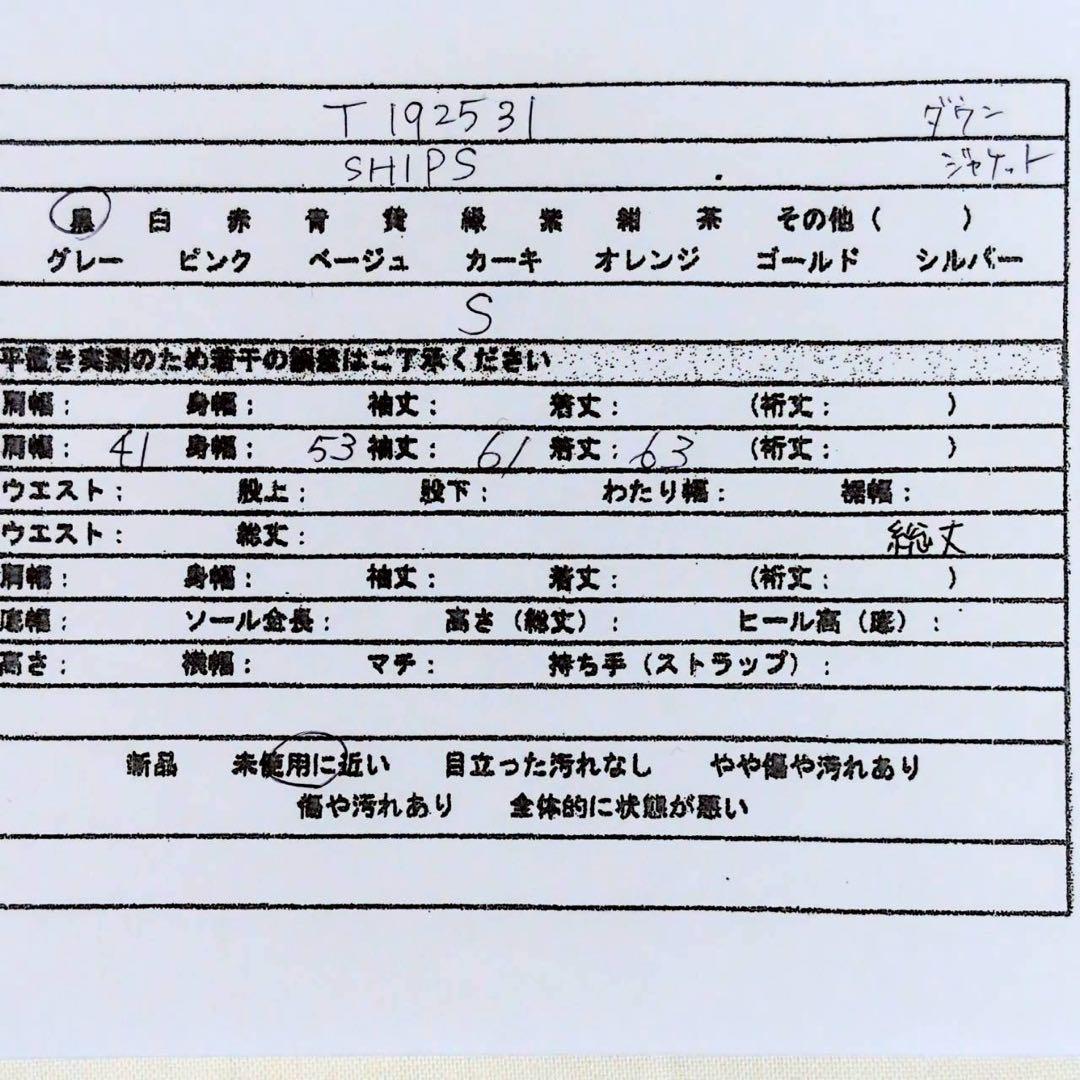 T 192531 ダウン
SHIPS ジャケット
黒 白 赤 青 黄 緑 紫 紺 茶 その他 ( )
グレー ピンク ベージュ カーキ オレンジ ゴールド シルバー
S
平置き実測のため若干の誤差はご了承ください
肩幅: 身幅: 袖丈: 着丈: (裄丈: )
肩幅: 41 身幅: 53 袖丈: 61 着丈: 63 (裄丈: )
ウエスト: 股上: 股下: わたり幅: 裾幅:
ウエスト: 総丈: 総丈
肩幅: 身幅: 袖丈: 着丈: (裄丈: )
底幅: ソール全長: 高さ (総丈) : ヒール高 (底) :
高さ: 横幅: マチ: 持ち手 (ストラップ) :
新品 未使用に近い 目立った汚れなし やや傷や汚れあり
傷や汚れあり 全体的に状態が悪い